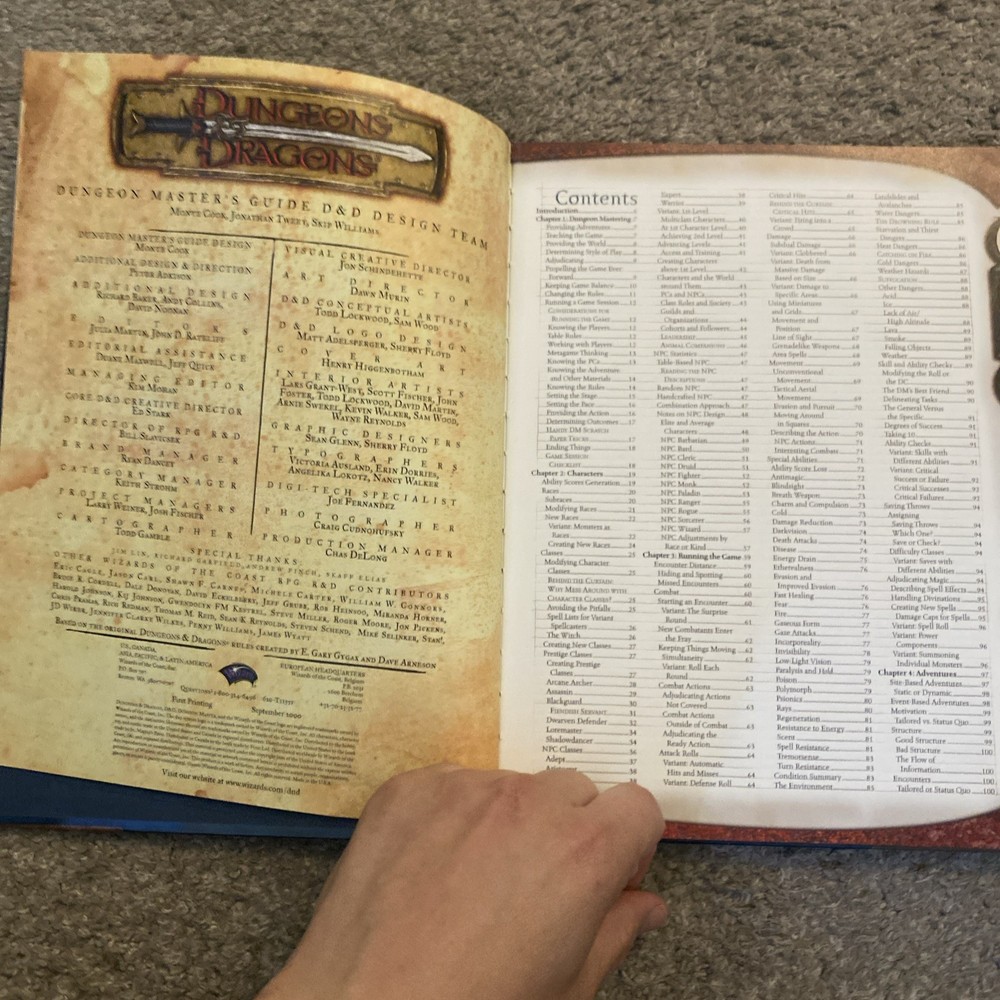 DUNGEONS
DRAGONS
DUNGEON MASTER'S GUIDE D&D DESIGN TEAM
MONTE COOK, JONATHAN TWEET, SKIP WILLIAMS
DUNGEON MASTER'S GUIDE DESIGN
MONTE COOK
ADDITIONAL DESIGN & DIRECTION
PETER ADKISON
ADDITIONAL DESIGN
RICHARD BAKER, ANDY COLLINS,
DAVID NOONAN
EDITORS
JULIA MARTIN, JOHN D. RATELIFF
EDITORIAL ASSISTANCE
DUANE MAXWELL, JEFF QUICK
MANAGING EDITOR
KIM MOHAN
CORE D&D CREATIVE DIRECTOR
ED STARK
DIRECTOR OF RPG R&D
BILL SLAVICSEK
BRAND MANAGER
RYAN DANCEY
CATEGORY MANAGER
KEITH STROHM
PROJECT MANAGERS
LARRY WEINER, JOSH FISCHER
CARTOGRAPHER
TODD GAMBLE
VISUAL CREATIVE DIRECTOR
JON SCHINDEHETTE
ART DIRECTOR
DAWN MURIN
D&D CONCEPTUAL ARTISTS
TODD LOCKWOOD, SAM WOOD
D&D LOGO DESIGN
MATT ADELSPERGER, SHERRY FLOYD
COVER ART
HENRY HIGGENBOTHAM
INTERIOR ARTISTS
LARS GRANT-WEST, SCOTT FISCHER, JOHN
FOSTER, TODD LOCKWOOD, DAVID MARTIN,
ARNIE SWEKEL, KEVIN WALKER, SAM WOOD,
WAYNE REYNOLDS
GRAPHIC DESIGNERS
SEAN GLENN, SHERRY FLOYD
TYPOGRAPHERS
VICTORIA AUSLAND, ERIN DORRIES,
ANGELIKA LOKOTZ, NANCY WALKER
DIGI-TECH SPECIALIST
JOE FERNANDEZ
PHOTOGRAPHER
CRAIG CUDNOHUFSKY
PRODUCTION MANAGER
CHAS DELONG
SPECIAL THANKS:
JIM LIN, RICHARD GARFIELD, ANDREW FINCH, SKAFF ELIAS
OTHER WIZARDS OF THE COAST RPG R&D CONTRIBUTORS
ERIC CAGLE, JASON CARL, SHAWN F. CARNES, MICHELE CARTER, WILLIAM W. CONNORS,
BRUCE R. CORDELL, DALE DONOVAN, DAVID ECKELBERRY, JEFF GRUBB, ROB HEINSOO, MIRANDA HORNER,
HAROLD JOHNSON, KIJ JOHNSON, GWENDOLYN FM KESTREL, STEVE MILLER, ROGER MOORE, JON PICKENS,
CHRIS PRAMAS, RICH REDMAN, THOMAS M. REID, SEAN K REYNOLDS, STEVEN SCHEND, MIKE SELINKER, STAN!,
JD WIKER, JENNIFER CLARKE WILKES, PENNY WILLIAMS, JAMES WYATT
BASED ON THE ORIGINAL DUNGEONS & DRAGONS RULES CREATED BY E. GARY GYGAX AND DAVE ARNESON
U.S., CANADA,
ASIA, PACIFIC, & LATIN AMERICA
Wizards of the Coast, Inc.
P.O. Box 707
Renton, WA
EUROPEAN HEADQUARTERS
Wizards of the Coast, Belgium
P.B.
Belgium
First Printing
September 2000
Visit our website at www.wizards.com/dnd
Contents
Introduction
Chapter 1: Dungeon Mastering 7
Providing Adventures
Teaching the Game
Providing the World
Determining Style of Play
Adjudicating
Propelling the Game Ever
Forward
Keeping Game Balance
Changing the Rules 11
Running a Game Session
CONSIDERATIONS FOR
RUNNING THE GAME 12
Knowing the Players
Table Rules
Working with Players
Metagame Thinking
Knowing the PCs
Knowing the Adventure
and Other Materials 14
Knowing the Rules 14
Setting the Stage
Setting the Pace
Providing the Action
Determining Outcomes 17
HANDY DM SCRATCH
PAPER TRICKS 17
Ending Things 18
GAME SESSION
CHECKLIST 18
Chapter 2: Characters 19
Ability Scores Generation 19
Races 20
Subraces 20
Modifying Races 21
New Races 22
Variant: Monsters as
Races 22
Creating New Races 24
Classes 25
Modifying Character
Classes 25
BEHIND THE CURTAIN:
WHY MESS AROUND WITH
CHARACTER CLASSES? 25
Avoiding the Pitfalls 25
Spell Lists for Variant
Spellcasters 26
The Witch 26
Creating New Classes 27
Prestige Classes 27
Creating Prestige
Classes 27
Arcane Archer 28
Assassin 29
Blackguard 30
FIENDISH SERVANT 31
Dwarven Defender 32
Loremaster 34
Shadowdancer 34
NPC Classes 36
Adept 37
Aristocrat 38
Expert 38
Warrior 39
Variant: 1st-Level
Multiclass Characters 40
At 1st Character Level 40
Achieving 2nd Level 41
Advancing Levels 41
Access and Training 41
Creating Characters
above 1st Level 42
Characters and the World
around Them 43
PCs and NPCs 43
Class Roles and Society 43
Guilds and
Organizations 44
Cohorts and Followers 44
LEADERSHIP 45
ANIMAL COMPANIONS 46
NPC Statistics 47
Table-Based NPC 47
READING THE NPC
DESCRIPTIONS 47
Random NPC 47
Handcrafted NPC 47
Combination Approach 47
Notes on NPC Design 48
Elite and Average
Characters 48
NPC Barbarian 49
NPC Bard 50
NPC Cleric 51
NPC Druid 51
NPC Fighter 52
NPC Monk 52
NPC Paladin 53
NPC Ranger 53
NPC Rogue 55
NPC Sorcerer 56
NPC Wizard 57
NPC Adjustments by
Race or Kind 57
Chapter 3: Running the Game 59
Encounter Distance 59
Hiding and Spotting 60
Missed Encounters 60
Combat 60
Starting an Encounter 60
Variant: The Surprise
Round 61
New Combatants Enter
the Fray 62
Keeping Things Moving 62
Simultaneity 62
Variant: Roll Each
Round 62
Combat Actions 63
Adjudicating Actions
Not Covered 63
Combat Actions
Outside of Combat 63
Adjudicating the
Ready Action 63
Attack Rolls 64
Variant: Automatic
Hits and Misses 64
Variant: Defense Roll 64
Critical Hits 64
BEHIND THE CURTAIN:
CRITICAL HITS
Variant: Sizing into a
Crowd 65
Damage
Subdual Damage
Variant: Clobbered
Variant: Death from
Massive Damage
Based on Size
Variant: Damage to
Specific Areas
Using Miniatures
and Grids 67
Movement and
Position 67
Line of Sight 67
Grenadelike Weapons 68
Area Spells 68
Movement 69
Unconventional
Movement 69
Tactical Aerial
Movement 69
Evasion and Pursuit 70
Moving Around
in Squares 70
Describing the Action 70
NPC Actions 71
Interesting Combats 71
Special Abilities 71
Ability Score Loss 72
Antimagic 72
Blindsight 73
Breath Weapon 73
Charm and Compulsion 73
Cold 73
Damage Reduction 73
Darkvision 74
Death Attacks 74
Disease 74
Energy Drain 75
Etherealness 76
Evasion and
Improved Evasion 76
Fast Healing 76
Fear 76
Fire 77
Gaseous Form 77
Gaze Attacks 77
Incorporeality 77
Invisibility 78
Low-Light Vision 79
Paralysis and Hold 79
Poison 79
Polymorph 79
Psionics 80
Rays 80
Regeneration 81
Resistance to Energy 81
Scent 81
Spell Resistance 81
Tremorsense 83
Turn Resistance 83
Condition Summary 83
The Environment 85
Landslides and
Avalanches 85
Water Dangers 85
THE DROWNING RULE 85
Starvation and Thirst
Dangers 86
Heat Dangers 86
CATCHING ON FIRE 86
Cold Dangers 86
Weather Hazards 87
SUFFOCATION 88
Other Dangers 88
Acid 88
Ice 88
Lack of Air/
High Altitude 88
Lava 88
Smoke 89
Falling Objects 89
Weather 89
Skill and Ability Checks 89
Modifying the Roll or
the DC 90
The DM's Best Friend 90
Delineating Tasks 90
The General Versus
the Specific 91
Degrees of Success 91
Taking 10 91
Ability Checks 91
Variant: Skills with
Different Abilities 91
Variant: Critical
Success or Failure 92
Critical Successes 92
Critical Failures 92
Saving Throws 94
Assigning
Saving Throws 94
Which One? 94
Save or Check? 94
Difficulty Classes 94
Variant: Saves with
Different Abilities 94
Adjudicating Magic 94
Describing Spell Effects 94
Handling Divinations 95
Creating New Spells 95
Damage Caps for Spells 95
Variant: Spell Roll 96
Variant: Power
Components 96
Variant: Summoning
Individual Monsters 96
Chapter 4: Adventures 97
Site-Based Adventures 97
Static or Dynamic 98
Event-Based Adventures 98
Motivation 99
Tailored vs. Status Quo 99
Structure 99
Good Structure 99
Bad Structure 100
The Flow of
Information 100
Encounters 100
Tailored or Status Quo 100